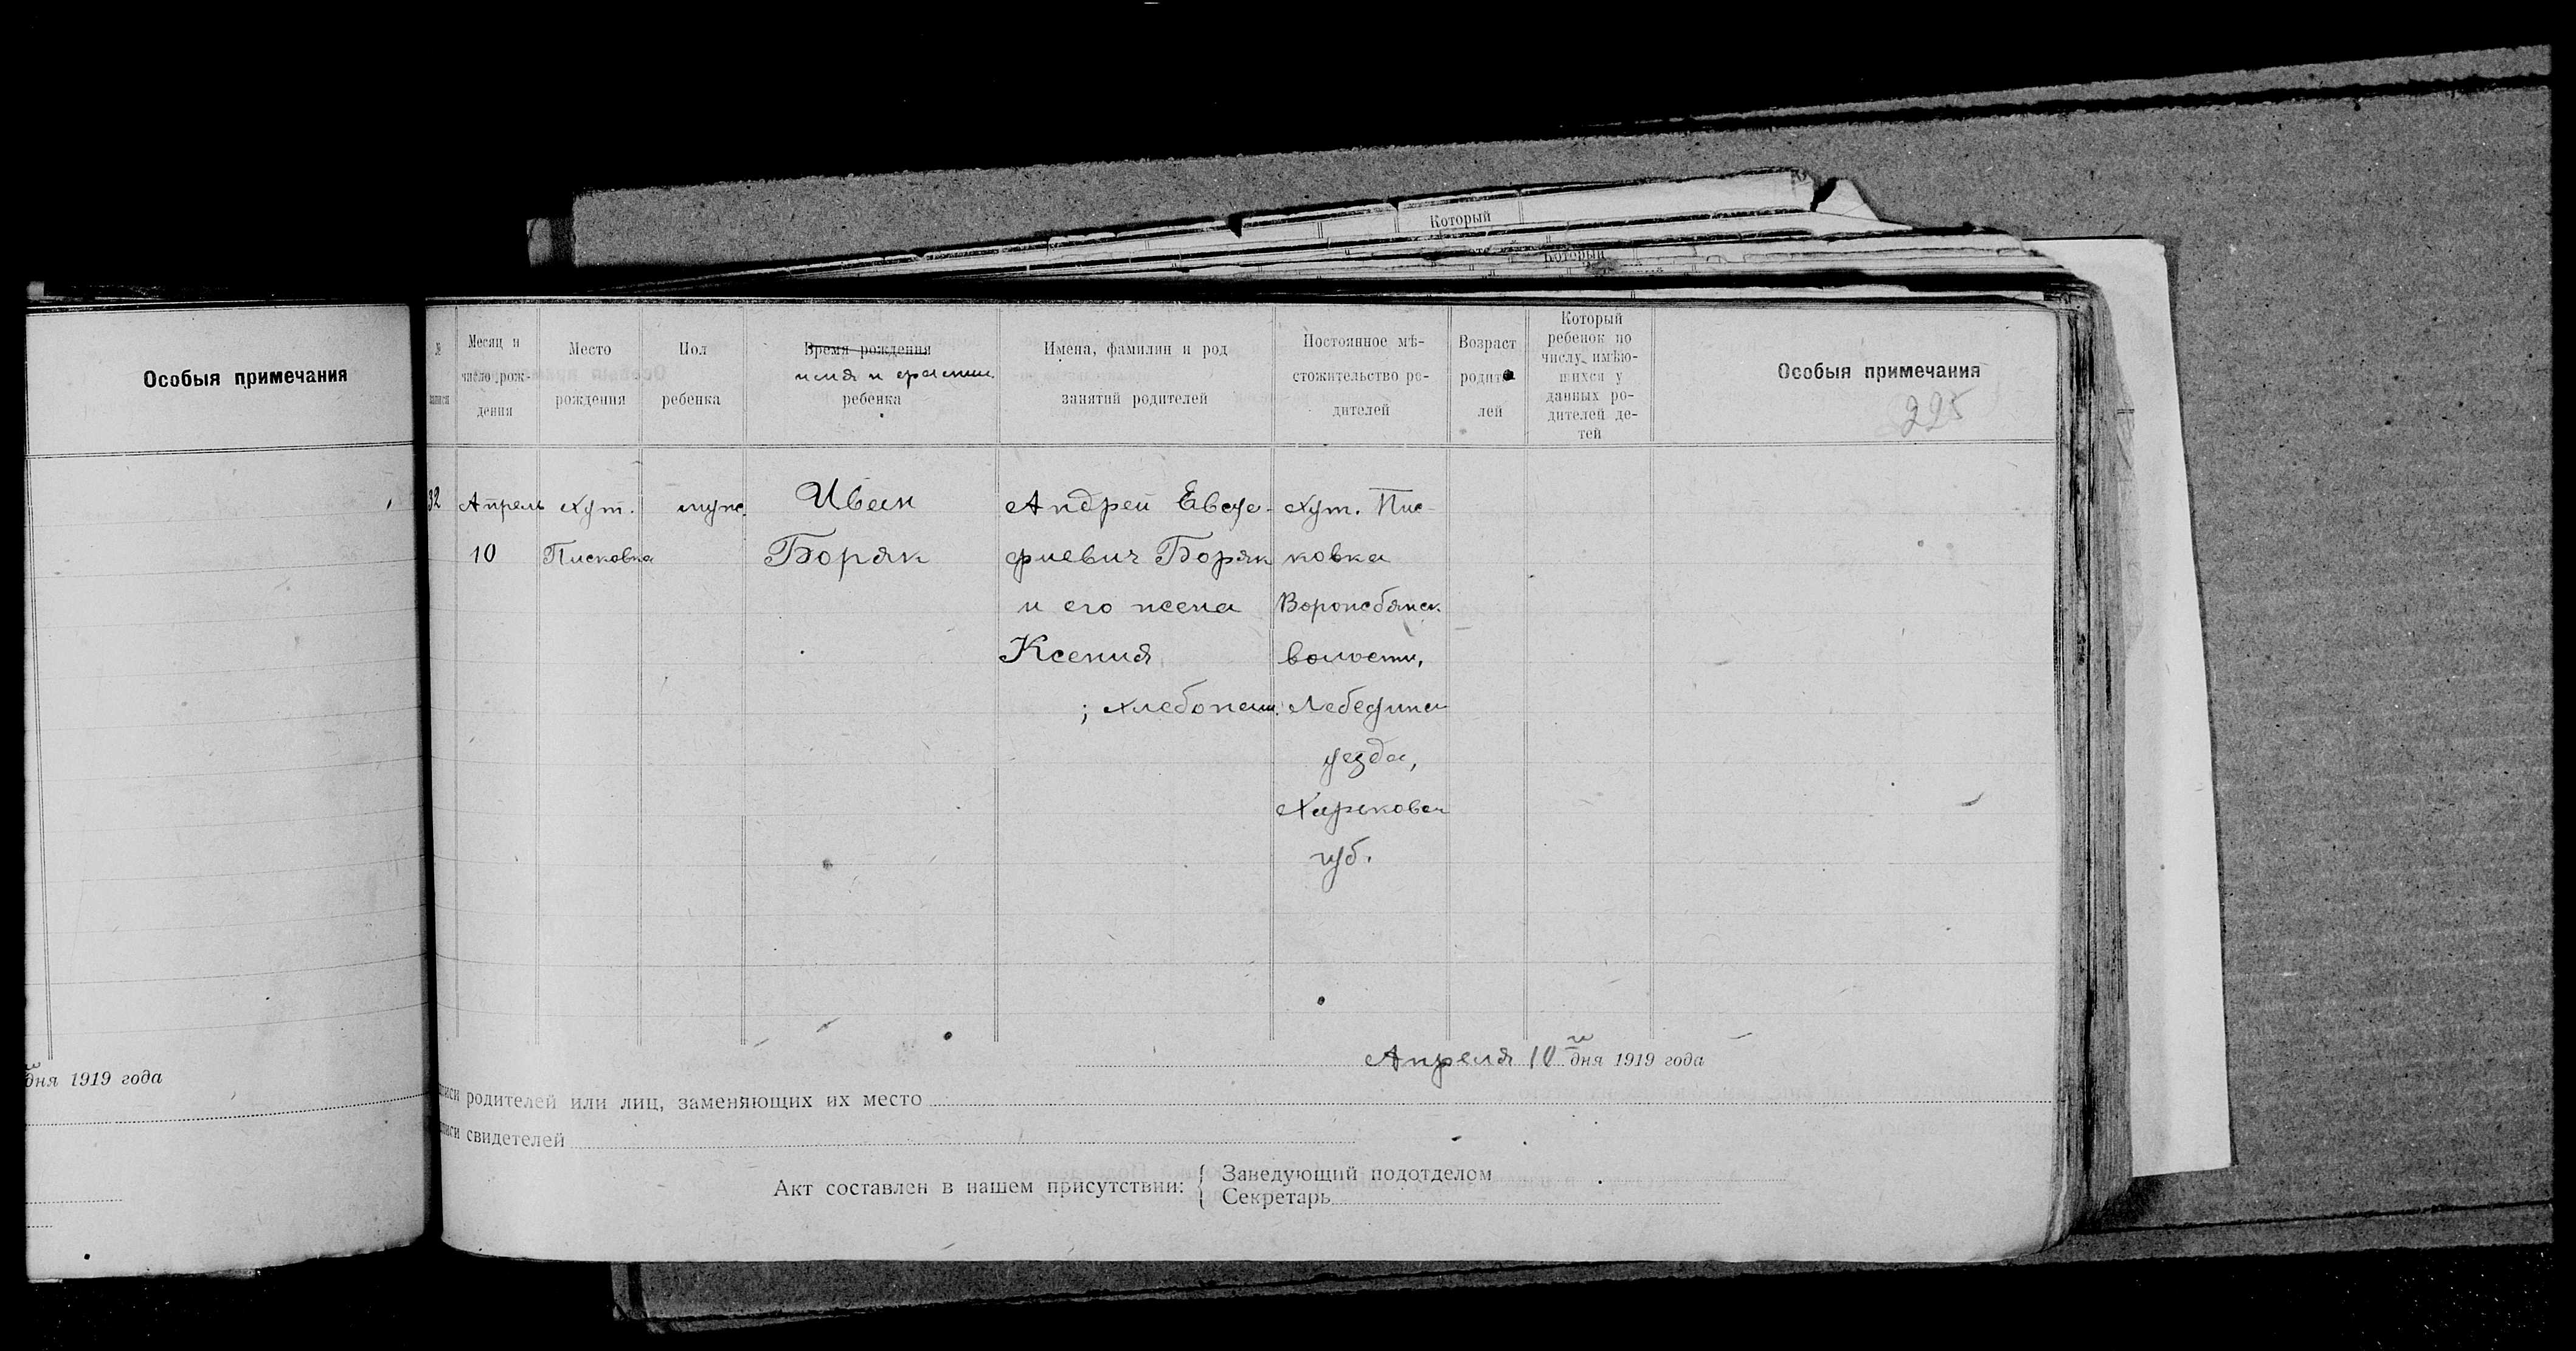 Который
Который
Особыя примечания
дня 1919 года
№ записи
Месяц и число рож-дения
Место рождения
Пол ребенка
Время рождения
имя и фамил.
ребенка
Имена, фамилии и род занятий родителей
Постоянное мѣ-стожительство ро-дителей
Возраст родите лей
Который ребенок по числу имѣю-щихся у данных ро-дителей де-тей
Особыя примечания
225
32 Апрель хут. муж. Иван Андрей Евсе- хут. Пис-
10 Писковка Боряк фиевич Боряк ковка
и его жена Ворожбянск.
Ксения волости,
; хлебопаш. Лебедин
уезда,
Харьков
губ.
Апреля 10 го дня 1919 года
писи родителей или лиц, заменяющих их место
писи свидетелей
Акт составлен в нашем присутствии: { Заведующий подотделом
Секретарь